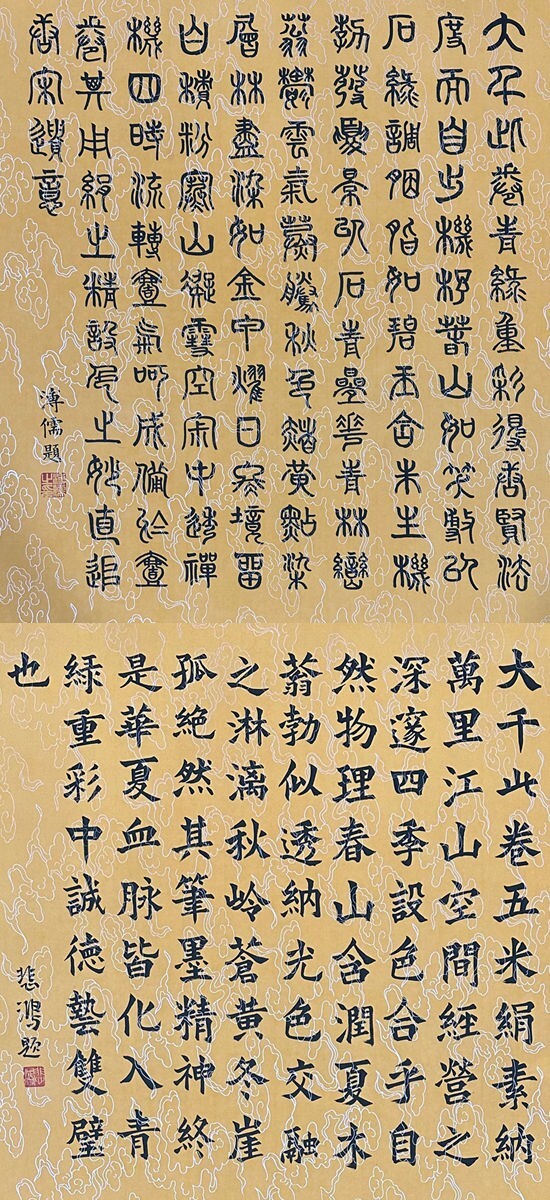 大千此卷青綠重彩得唐賢法
度而自出機杼春山如笑敷以
石綠調如碧玉含未生機
勃發夏景以石青疊花青林巒
蓊鬱雲氣蒸騰秋色赭黃點染
層林盡染如金甲耀日冬境留
白積粉寒山凝雪空寂中透禪
機四時流轉壹氣呵成備於壹
卷其用絹之精設色之妙直追
唐宋遺意
溥儒題
大千此卷五米絹素納
萬里江山空間經營之
深邃四季設色合乎自
然物理春山含潤夏木
蓊勃似透納光色交融
之淋漓秋岭蒼黃冬崖
孤絕然其筆墨精神終
是華夏血脉皆化入青
綠重彩中誠德藝雙璧
也
悲鴻題